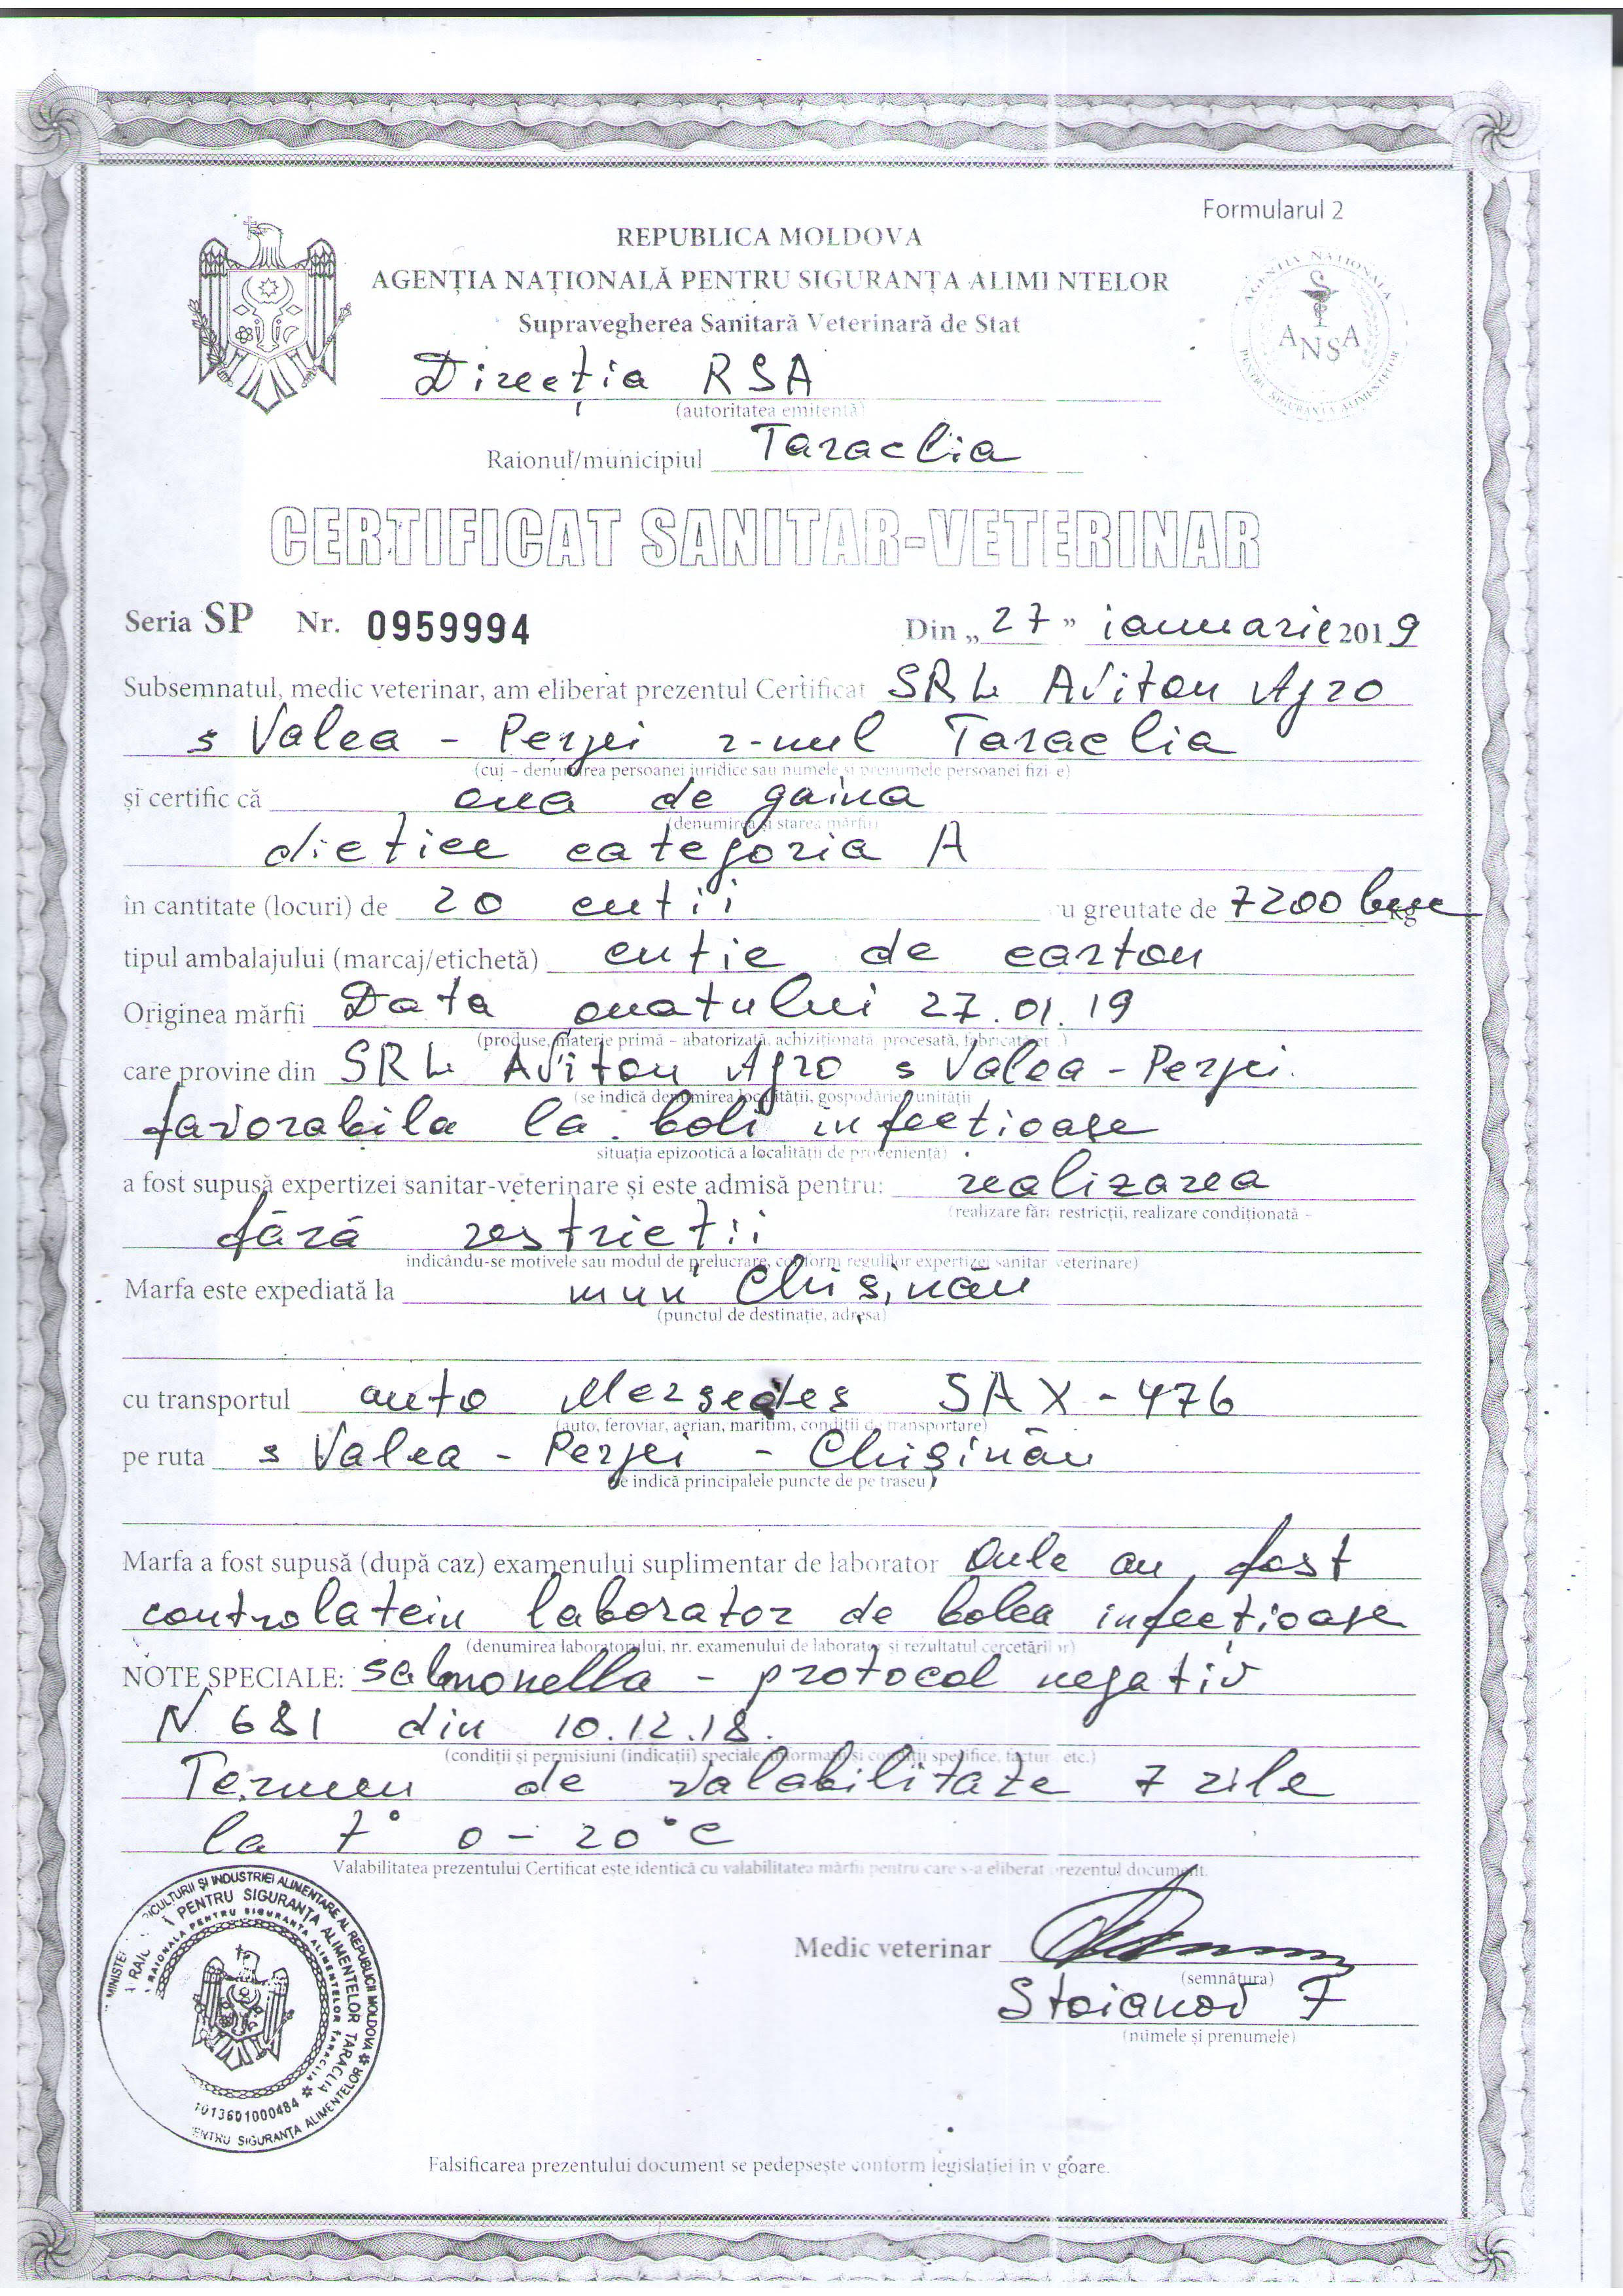 Formularul 2
REPUBLICA MOLDOVA
AGENȚIA NAȚIONALĂ PENTRU SIGURANȚA ALIMENTELOR
Supravegherea Sanitară Veterinară de Stat
AGENȚIA NAȚIONALĂ PENTRU SIGURANȚA ALIMENTELOR
ANSA
Direcția RSA
(autoritatea emitentă)
Raionul/municipiul Taraclia
CERTIFICAT SANITAR-VETERINAR
Seria SP Nr. 0959994 Din „27” ianuarie 2019
Subsemnatul, medic veterinar, am eliberat prezentul Certificat SRL Aviton Agro
s Valea - Perjei r-nul Taraclia
(cui – denumirea persoanei juridice sau numele și prenumele persoanei fizice)
și certific că oua de gaina
(denumirea și starea mărfii)
dietice categoria A
în cantitate (locuri) de 20 cutii cu greutate de 7200 buc kg
tipul ambalajului (marcaj/etichetă) cutie de carton
Originea mărfii Data ouatului 27.01.19
(produse, materie primă – abatorizată, achiziționată, procesată, fabricată etc.)
care provine din SRL Aviton Agro s Valea - Perjei.
(se indică denumirea localității, gospodăriei, unității
favorabila la boli infecțioase
situația epizootică a localității de proveniență)
a fost supusă expertizei sanitar-veterinare și este admisă pentru: realizarea
(realizare fără restricții, realizare condiționată –
fără restricții
indicându-se motivele sau modul de prelucrare, conform regulilor expertizei sanitar veterinare)
Marfa este expediată la mun Chișinău
(punctul de destinație, adresa)
cu transportul auto Mersedes SAX - 476
(auto, feroviar, aerian, maritim, condiții de transportare)
pe ruta s Valea - Perjei - Chișinău
(se indică principalele puncte de pe traseu)
Marfa a fost supusă (după caz) examenului suplimentar de laborator Oule au fost
controlate in laborator de bolea infecțioase
(denumirea laboratorului, nr. examenului de laborator și rezultatul cercetărilor)
NOTE SPECIALE: salmonella - protocol negativ
N 681 din 10.12.18.
(condiții și permisiuni (indicații) speciale, informații și condiții specifice, factura etc.)
Termen de valabilitate 7 zile
la t° 0 - 20°C
Valabilitatea prezentului Certificat este identică cu valabilitatea mărfii pentru care s-a eliberat prezentul document.
Medic veterinar
(semnătura)
Stoianov F
(numele și prenumele)
PENTRU SIGURANȚA ALIMENTELOR TARACLIA
1013601000484
Falsificarea prezentului document se pedepsește conform legislației în vigoare.